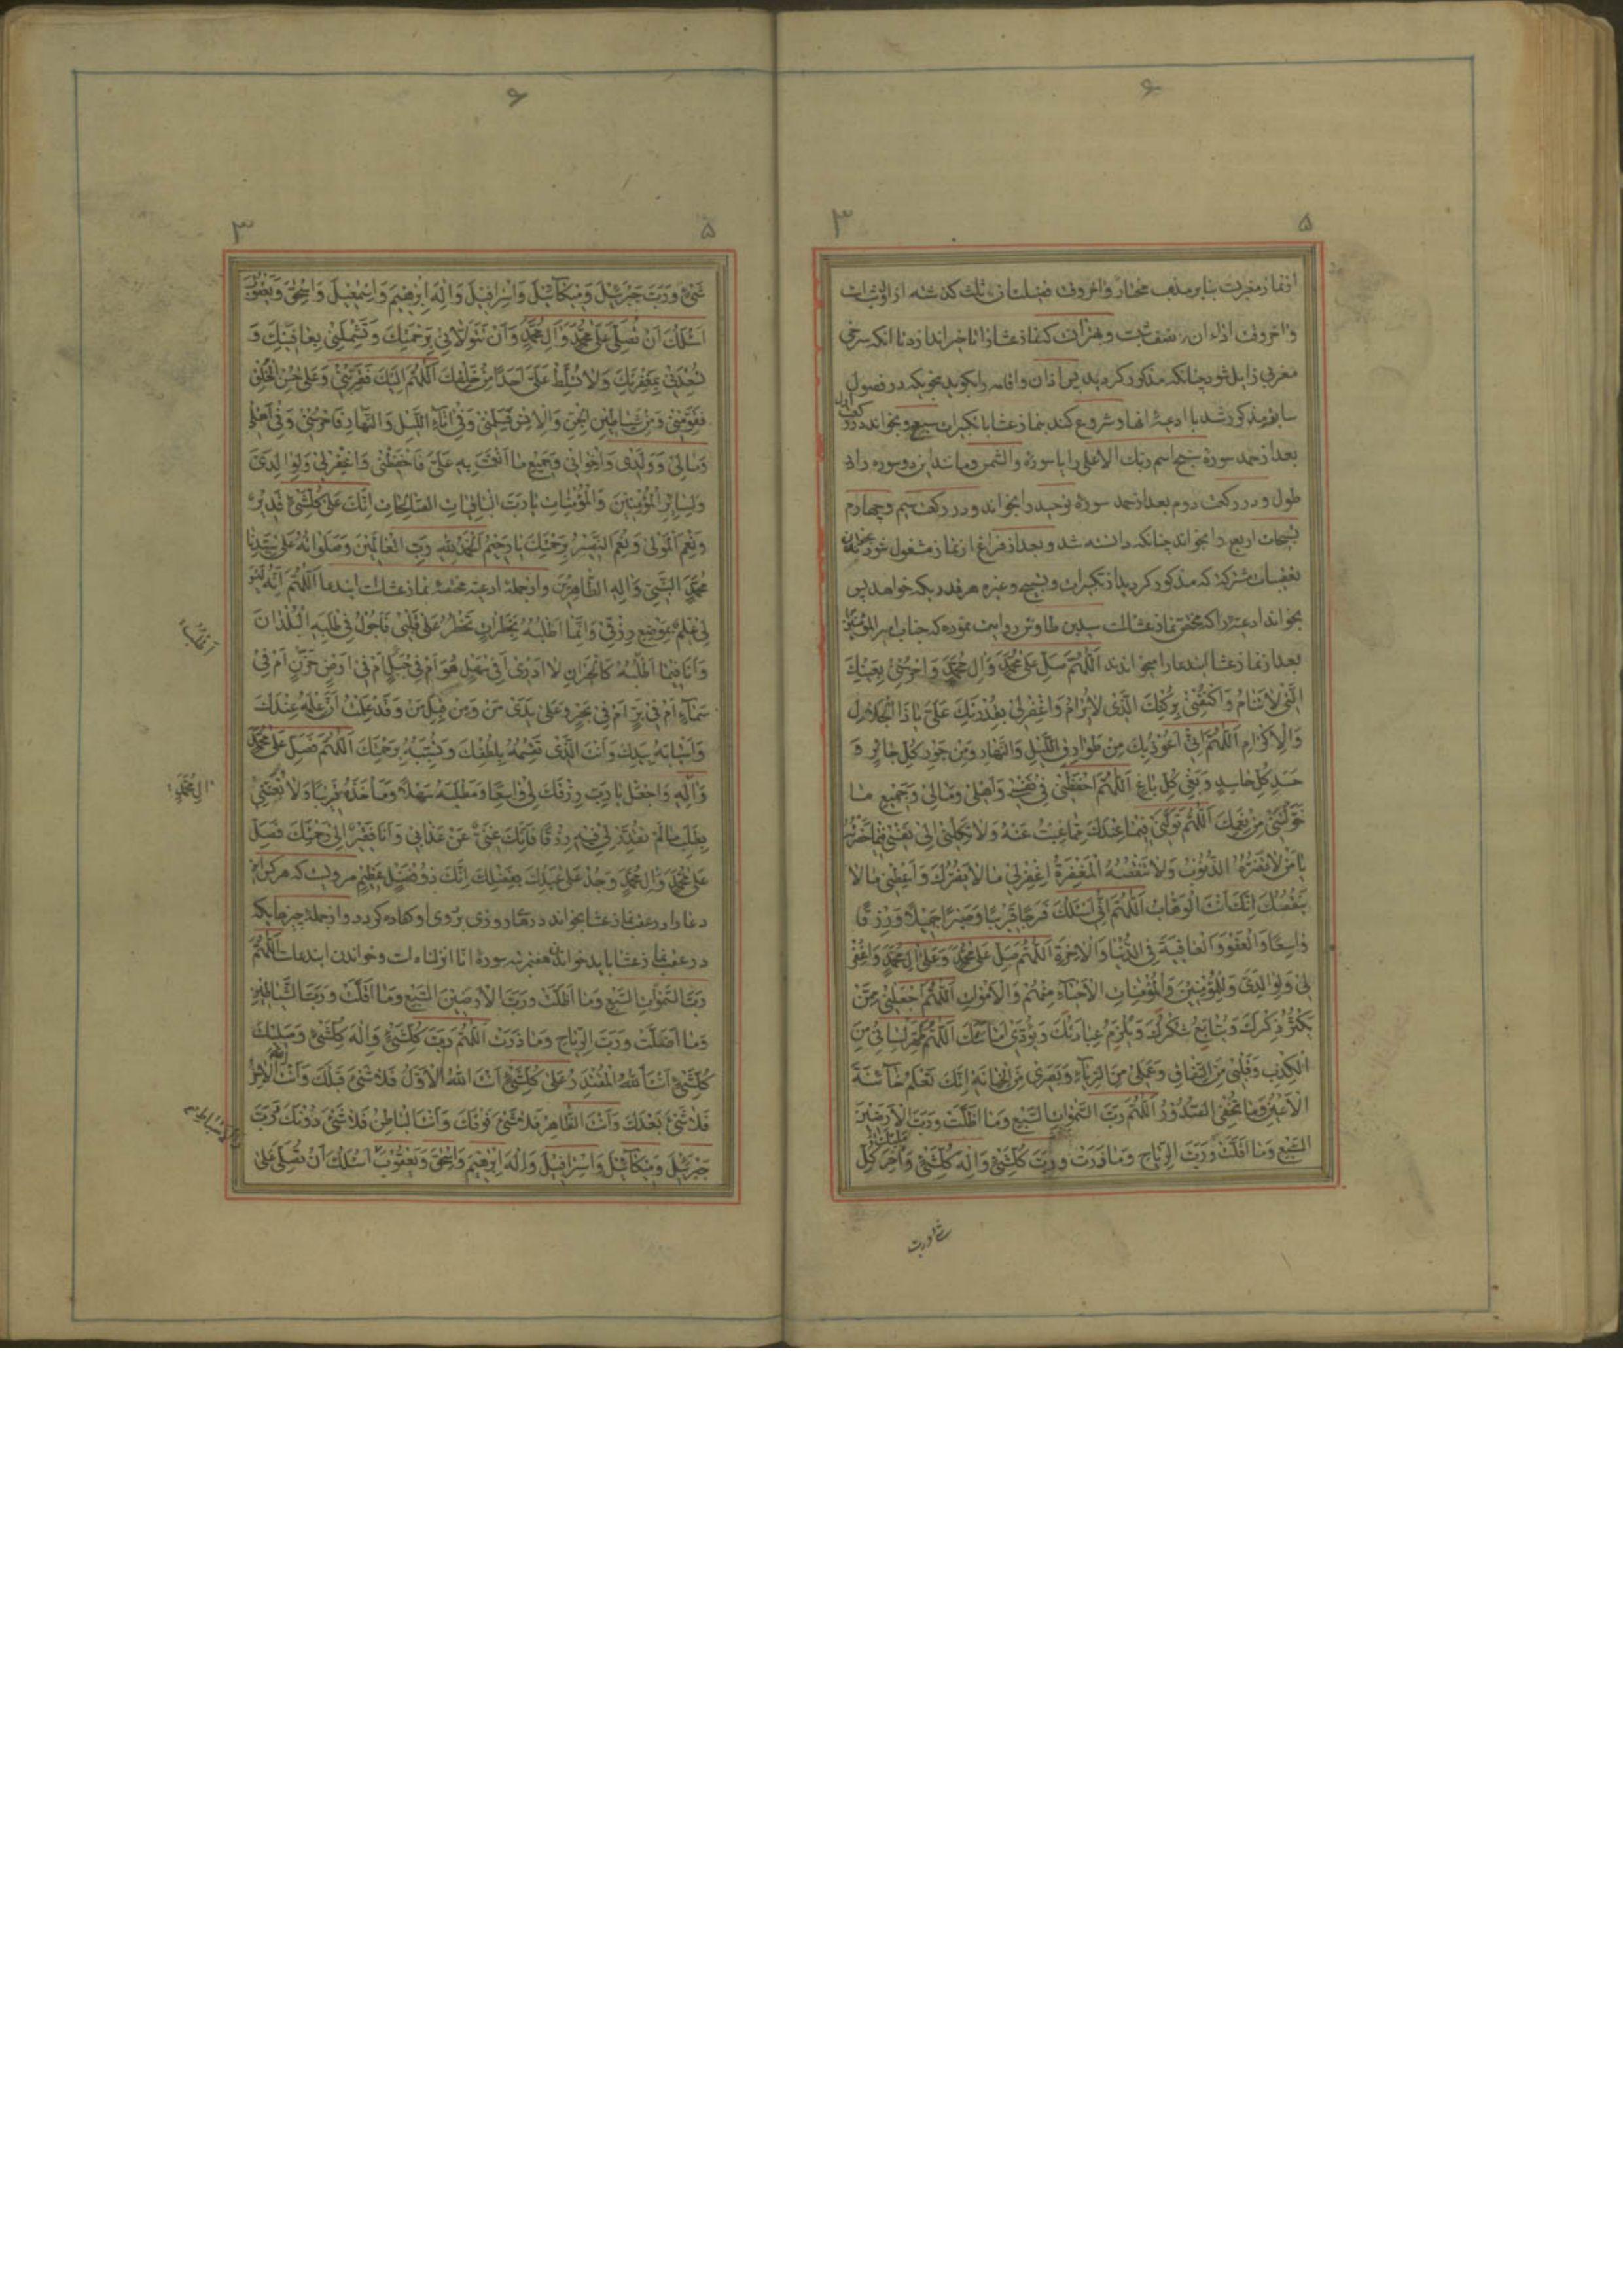 ۶
۵
۳
از نماز مغربست بنا بر مذهب مختار و آخر وقت فضیلت آن ثلث گذشته از اول شب است
و آخر وقت اداء آن نصف شبست و بهتر آن که نماز عشا را تاخیر اندازد تا آنکه سرخی
مغربی زایل شود چنانکه مذکور گردید پس اذان و اقامه را بگوید بنحویکه در فصول
سابق مذکور شد با ادعیۀ آنها و شروع کند بنماز عشا با تکبیرات سبع و بخواند در رکعت اول
بعد از حمد سورۀ سبح اسم ربک الاعلی را یا سورۀ والشمس و مانند این دو سوره را در
طول و در رکعت دوم بعد از حمد سورۀ توحید را بخواند و در رکعت سیم و چهارم
تسبیحات اربع را بخواند چنانکه دانسته شد و بعد از فراغ از نماز مشغول شود بخواندن
تعقیبات مشترکه که مذکور گردید از تکبیرات و تسبیح و غیره هر قدریکه خواهد پس
بخواند ادعیۀ را که مختص نماز عشا است سید بن طاوس روایت نموده که جناب امیر المؤمنین
بعد از نماز عشا این دعا را میخواندند اَللّهُمَّ صَلِّ عَلی مُحَمَّدٍ وَ الِ مُحَمَّدٍ وَ احْرُسْنی بِعَیْنِکَ
الَّتی لا تَنامُ وَ اکْنُفْنی بِرُکْنِکَ الَّذی لا یُرامُ وَ اغْفِرْ لی بِقُدْرَتِکَ عَلَیَّ یا ذَا الْجَلالِ
وَ الْاِکْرامِ اَللّهُمَّ اِنّی اَعُوذُ بِکَ مِنْ طَوارِقِ اللَّیْلِ وَ النَّهارِ وَ مِنْ جَوْرِ کُلِّ جائِرٍ وَ
حَسَدِ کُلِّ حاسِدٍ وَ بَغْیِ کُلِّ باغٍ اَللّهُمَّ احْفَظْنی فی نَفْسی وَ اَهْلی وَ مالی وَ جَمیعِ ما
خَوَّلْتَنی مِنْ نِعَمِکَ اَللّهُمَّ تَوَلَّنی فیما عِنْدَکَ مِمّا غِبْتُ عَنْهُ وَ لا تَکِلْنی اِلی نَفْسی فیما حَضَرْتُهُ
یا مَنْ لا تَضُرُّهُ الذُّنُوبُ وَ لا تَنْقُصُهُ الْمَغْفِرَةُ اِغْفِرْ لی ما لا یَضُرُّکَ وَ اَعْطِنی ما لا
یَنْقُصُکَ اِنَّکَ اَنْتَ الْوَهّابُ اَللّهُمَّ اِنّی اَسْئَلُکَ فَرَجًا قَریبًا وَ صَبْرًا جَمیلًا وَ رِزْقًا
واسِعًا وَ الْعَفْوَ وَ الْعافِیَةَ فِی الدُّنْیا وَ الْاخِرَةِ اَللّهُمَّ صَلِّ عَلی مُحَمَّدٍ وَ عَلی الِ مُحَمَّدٍ وَ اغْفِرْ
لی وَ لِوالِدَیَّ وَ لِلْمُؤْمِنینَ وَ الْمُؤْمِناتِ الْاَحْیاءِ مِنْهُمْ وَ الْاَمْواتِ اَللّهُمَّ اجْعَلْنی مِمَّنْ
یُکْثِرُ ذِکْرَکَ وَ یُتابِعُ شُکْرَکَ وَ یَلْزَمُ عِبادَتَکَ وَ یُؤَدّی اَمانَتَکَ اَللّهُمَّ طَهِّرْ لِسانی مِنَ
الْکِذْبِ وَ قَلْبی مِنَ النِّفاقِ وَ عَمَلی مِنَ الرِّیاءِ وَ بَصَری مِنَ الْخِیانَةِ اِنَّکَ تَعْلَمُ خائِنَةَ
الْاَعْیُنِ وَ ما تُخْفِی الصُّدُورُ اَللّهُمَّ رَبَّ السَّمواتِ السَّبْعِ وَ ما اَظَلَّتْ وَ رَبَّ الْاَرَضینَ
السَّبْعِ وَ ما اَقَلَّتْ وَ رَبَّ الرِّیاحِ وَ ما ذَرَتْ وَ رَبَّ کُلِّشَیْءٍ وَ اِلهَ کُلِّشَیْءٍ وَ اخِرَ کُلِّ
شئ و رب
۶
۵
۳
شَیْءٍ وَ رَبَّ جَبْرَئیلَ وَ میکائیلَ وَ اِسْرافیلَ وَ اِلهَ اِبْرهیمَ وَ اِسْمعیلَ وَ اِسْحقَ وَ یَعْقُوبَ
اَسْئَلُکَ اَنْ تُصَلِّیَ عَلی مُحَمَّدٍ وَ الِ مُحَمَّدٍ وَ اَنْ تَتَوَلّانی بِرَحْمَتِکَ وَ تَشْمِلَنی بِعافِیَتِکَ وَ
تُسْعِدَنی بِمَغْفِرَتِکَ وَ لا تُسَلِّطْ عَلَیَّ اَحَدًا مِنْ خَلْقِکَ اَللّهُمَّ اِلَیْکَ فَقَرِّبْنی وَ عَلی حُسْنِ الْخُلُقِ
فَقَوِّمْنی وَ مِنْ شَیاطینِ الْجِنِّ وَ الْاِنْسِ فَسَلِّمْنی وَ فی اناءِ اللَّیْلِ وَ النَّهارِ فَاحْرُسْنی وَ فی اَهْلی
وَ مالی وَ وَلَدی وَ اِخْوانی وَ جَمیعِ ما اَنْعَمْتَ بِهِ عَلَیَّ فَاحْفَظْنی وَ اغْفِرْ لی وَ لِوالِدَیَّ
وَ لِسائِرِ الْمُؤْمِنینَ وَ الْمُؤْمِناتِ یا رَبَّ الْباقِیاتِ الصّالِحاتِ اِنَّکَ عَلی کُلِّشَیْءٍ قَدیرٌ
وَ نِعْمَ الْمَوْلی وَ نِعْمَ النَّصیرُ بِرَحْمَتِکَ یا رَحیمُ اَلْحَمْدُ لِلّهِ رَبِّ الْعالَمینَ وَ صَلَواتُهُ عَلی سَیِّدِنا
مُحَمَّدٍ النَّبِیِّ وَ الِهِ الطّاهِرینَ و از جملۀ ادعیۀ مختصۀ نماز عشاست این دعا اَللّهُمَّ اِنَّهُ لَیْسَ
لی عِلْمٌ بِمَوْضِعِ رِزْقی وَ اِنَّما اَطْلُبُهُ بِخَطَراتٍ تَخْطُرُ عَلی قَلْبی فَاَجُولُ فی طَلَبِهِ الْبُلْدانَ
وَ اَنَا فیما اَطْلُبُهُ کَالْحَیْرانِ لا اَدْری اَفی سَهْلٍ هُوَ اَمْ فی جَبَلٍ اَمْ فی اَرْضٍ حَزَنٍ اَمْ فی
سَماءٍ اَمْ فی بَرٍّ اَمْ فی بَحْرٍ وَ عَلی یَدَیْ مَنْ وَ مِنْ قِبَلِ مَنْ وَ قَدْ عَلِمْتُ اَنَّ عِلْمَهُ عِنْدَکَ
وَ اَسْبابَهُ بِیَدِکَ وَ اَنْتَ الَّذی تَقْسِمُهُ بِلُطْفِکَ وَ تُسَبِّبُهُ بِرَحْمَتِکَ اَللّهُمَّ فَصَلِّ عَلی مُحَمَّدٍ
وَ الِهِ وَ اجْعَلْ یا رَبِّ رِزْقَکَ لی واسِعًا وَ مَطْلَبَهُ سَهْلًا وَ مَأْخَذَهُ قَریبًا وَ لا تُعَنِّنی
بِطَلَبِ ما لَمْ تُقَدِّرْ لی فیهِ رِزْقًا فَاِنَّکَ غَنِیٌّ عَنْ عَذابی وَ اَنَا فَقیرٌ اِلی رَحْمَتِکَ فَصَلِّ
عَلی مُحَمَّدٍ وَ الِ مُحَمَّدٍ وَ جُدْ عَلی عَبْدِکَ بِفَضْلِکَ اِنَّکَ ذُو فَضْلٍ عَظیمٍ مرویست که هر که این
دعا را در عقب نماز عشا بخواند درهای روزی بروی او گشاده گردد و از جملۀ چیزهائیکه
در عقب نماز عشا باید خواندن هفت مرتبه سورۀ انا انزلناه است و خواندن این دعاست اَللّهُمَّ
رَبَّ السَّمواتِ السَّبْعِ وَ ما اَظَلَّتْ وَ رَبَّ الْاَرَضینَ السَّبْعِ وَ ما اَقَلَّتْ وَ رَبَّ الشَّیاطینِ
وَ ما اَضَلَّتْ وَ رَبَّ الرِّیاحِ وَ ما ذَرَتْ اَللّهُمَّ رَبَّ کُلِّشَیْءٍ وَ اِلهَ کُلِّشَیْءٍ وَ مَلیکَ
کُلِّشَیْءٍ اَنْتَ اللّهُ الْمُقْتَدِرُ عَلی کُلِّشَیْءٍ اَنْتَ اللّهُ الْاَوَّلُ فَلا شَیْءَ قَبْلَکَ وَ اَنْتَ الْاخِرُ
فَلا شَیْءَ بَعْدَکَ وَ اَنْتَ الظّاهِرُ فَلا شَیْءَ فَوْقَکَ وَ اَنْتَ الْباطِنُ فَلا شَیْءَ دُونَکَ وَ رَبَّ
جَبْرَئیلَ وَ میکائیلَ وَ اِسْرافیلَ وَ اِلهَ اِبْرهیمَ وَ اِسْحقَ وَ یَعْقُوبَ اَسْئَلُکَ اَنْ تُصَلِّیَ عَلی
الِ مُحَمَّدٍ